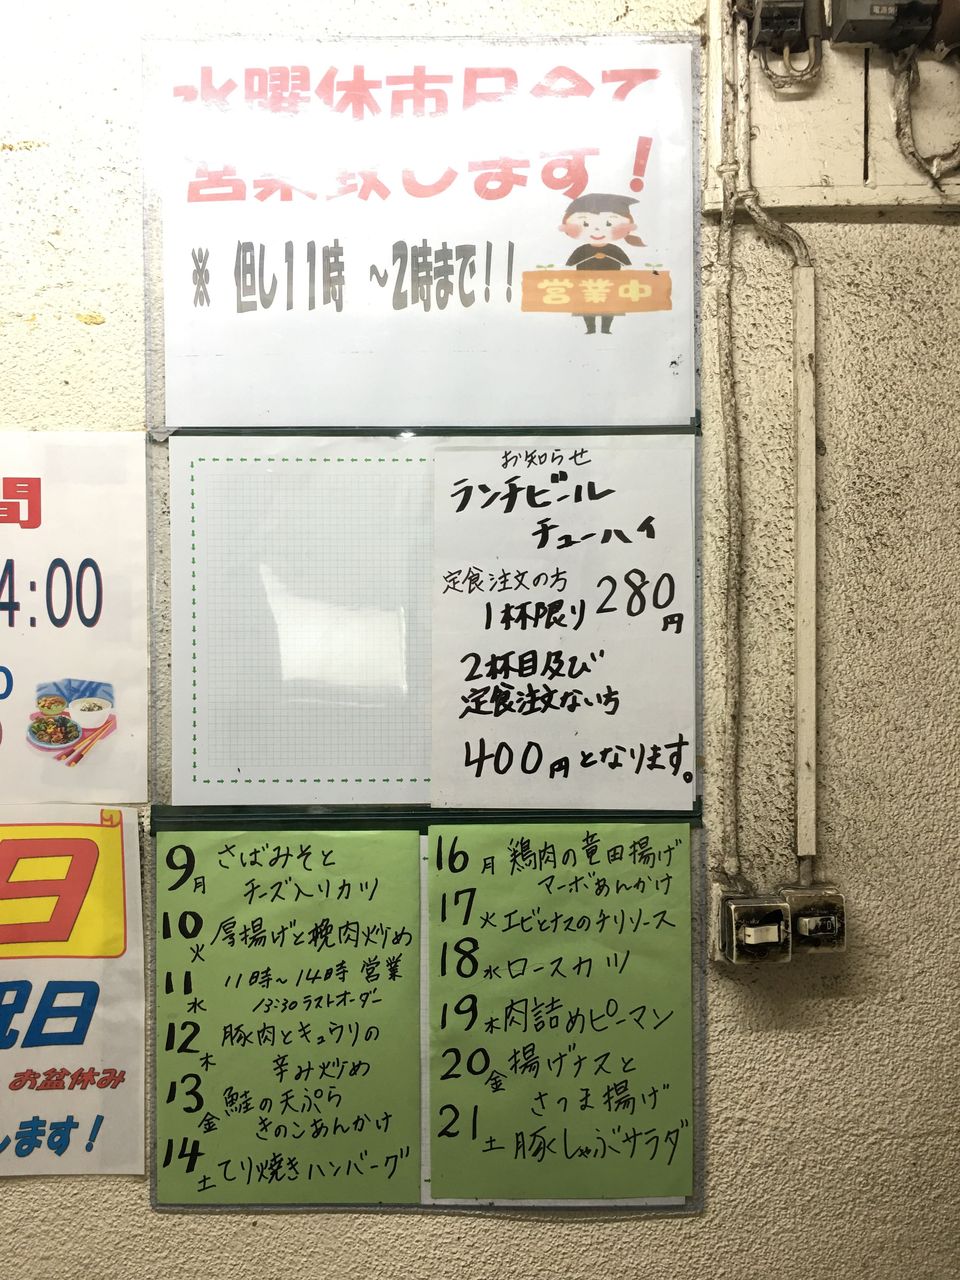 水曜休市日全て
営業致します！
※ 但し11時 ～2時まで！！
営業中
お知らせ
ランチビール
チューハイ
定食注文の方
1杯限り 280円
2杯目及び
定食注文ない方
400円となります。
間
4:00
日
祝日
お盆休み
します！
9月 さばみそと
チーズ入りカツ
10火 厚揚げと挽肉炒め
11水 11時～14時 営業
13:30ラストオーダー
12木 豚肉とキュウリの
辛み炒め
13金 鮭の天ぷら
きのこあんかけ
14土 てり焼きハンバーグ
16月 鶏肉の竜田揚げ
マーボあんかけ
17火 エビとナスのチリソース
18水 ロースカツ
19木 肉詰めピーマン
20金 揚げナスと
さつま揚げ
21土 豚しゃぶサラダ